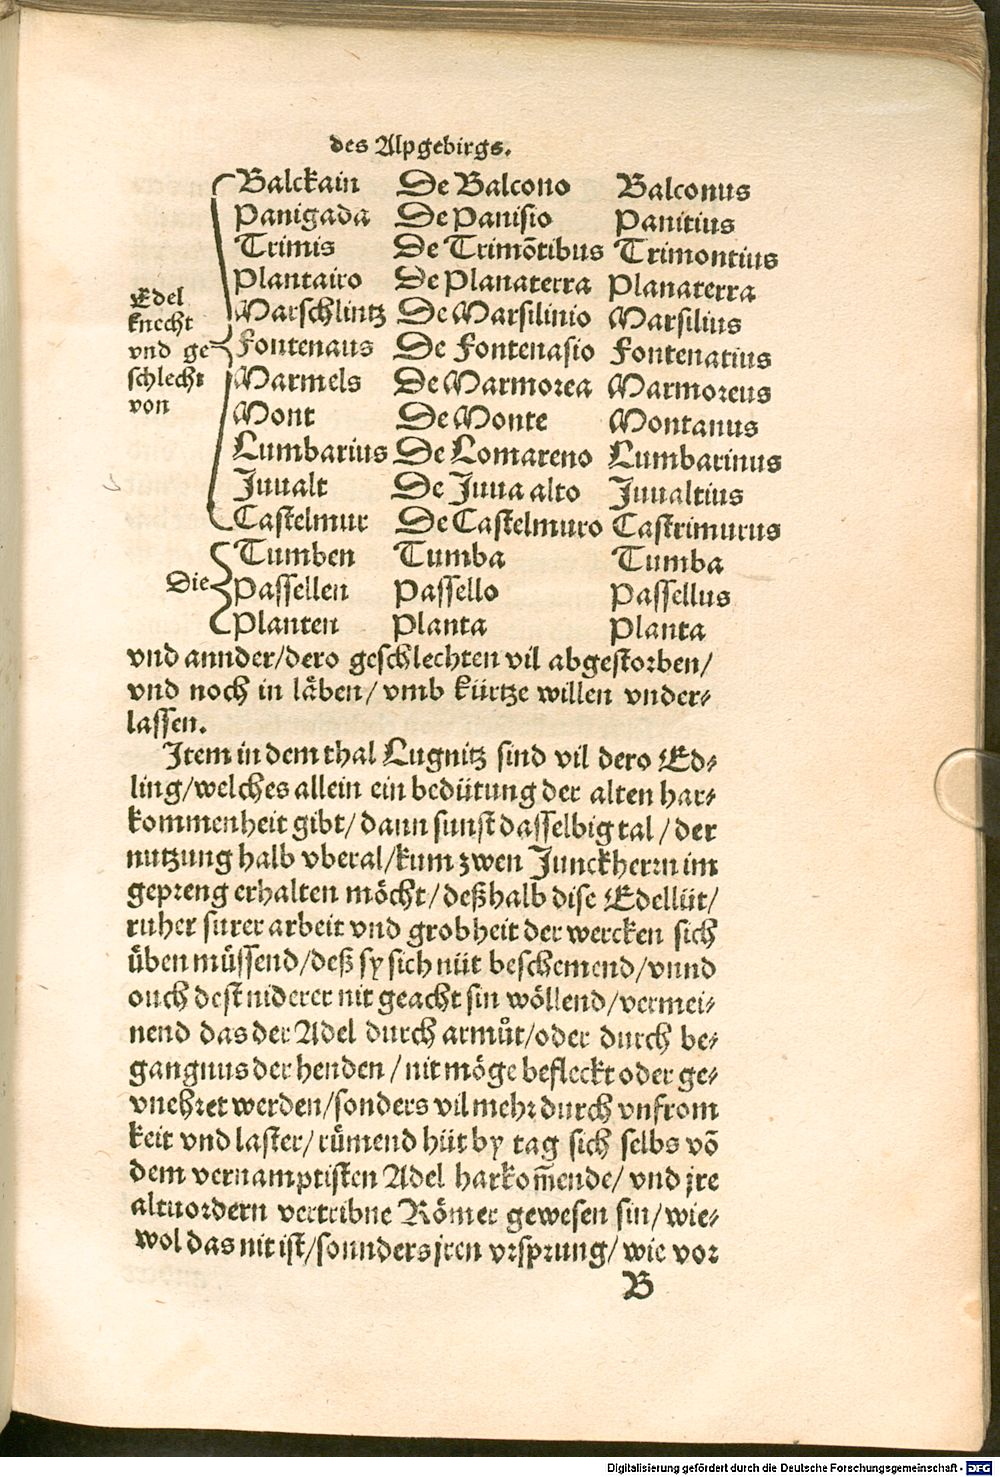 des Alpgebirgs.
Balckain De Balcono Balconus
Panigada De Panisio Panitius
Trimis De Trimõtibus Trimontius
Plantairo De Planaterra Planaterra
Marschlintz De Marsilinio Marsilius
Fontenaus De Fontenasio Fontenatius
Marmels De Marmorea Marmoreus
Mont De Monte Montanus
Lumbarius De Lomareno Lumbarinus
Juualt De Juua alto Juualtius
Castelmur De Castelmuro Castrimurus
Edel
knecht
vnd ge
schlecht
von
Tumben Tumba Tumba
Die Passellen Passello Passellus
Planten Planta Planta
vnd annder/dero geschlechten vil abgestorben/
vnd noch in läben/ vmb kürtze willen vnder⸗
lassen.
Item in dem thal Lugnitz sind vil dero Ed⸗
ling/welches allein ein bedütung der alten har⸗
kommenheit gibt/ dann sunst dasselbig tal / der
nutzung halb vberal/kum zwen Junckherrn im
gepreng erhalten möcht/ deßhalb dise Edellüt/
ruher surer arbeit vnd grobheit der wercken sich
üben müssend/deß sy sich nüt beschemend/vnnd
ouch dest niderer nit geacht sin wöllend/vermei⸗
nend das der Adel durch armůt/oder durch be⸗
gangnus der henden / nit möge befleckt oder ge⸗
vnehret werden/sonders vil mehr durch vnfrom
keit vnd laster/ rümend hüt by tag sich selbs võ
dem vernamptisten Adel harkom̃ende/ vnd jre
altuordern vertribne Römer gewesen sin/ wie⸗
wol das nit ist/sonnders jren vrsprung/ wie vor
B
Digitalisierung gefördert durch die Deutsche Forschungsgemeinschaft - DFG